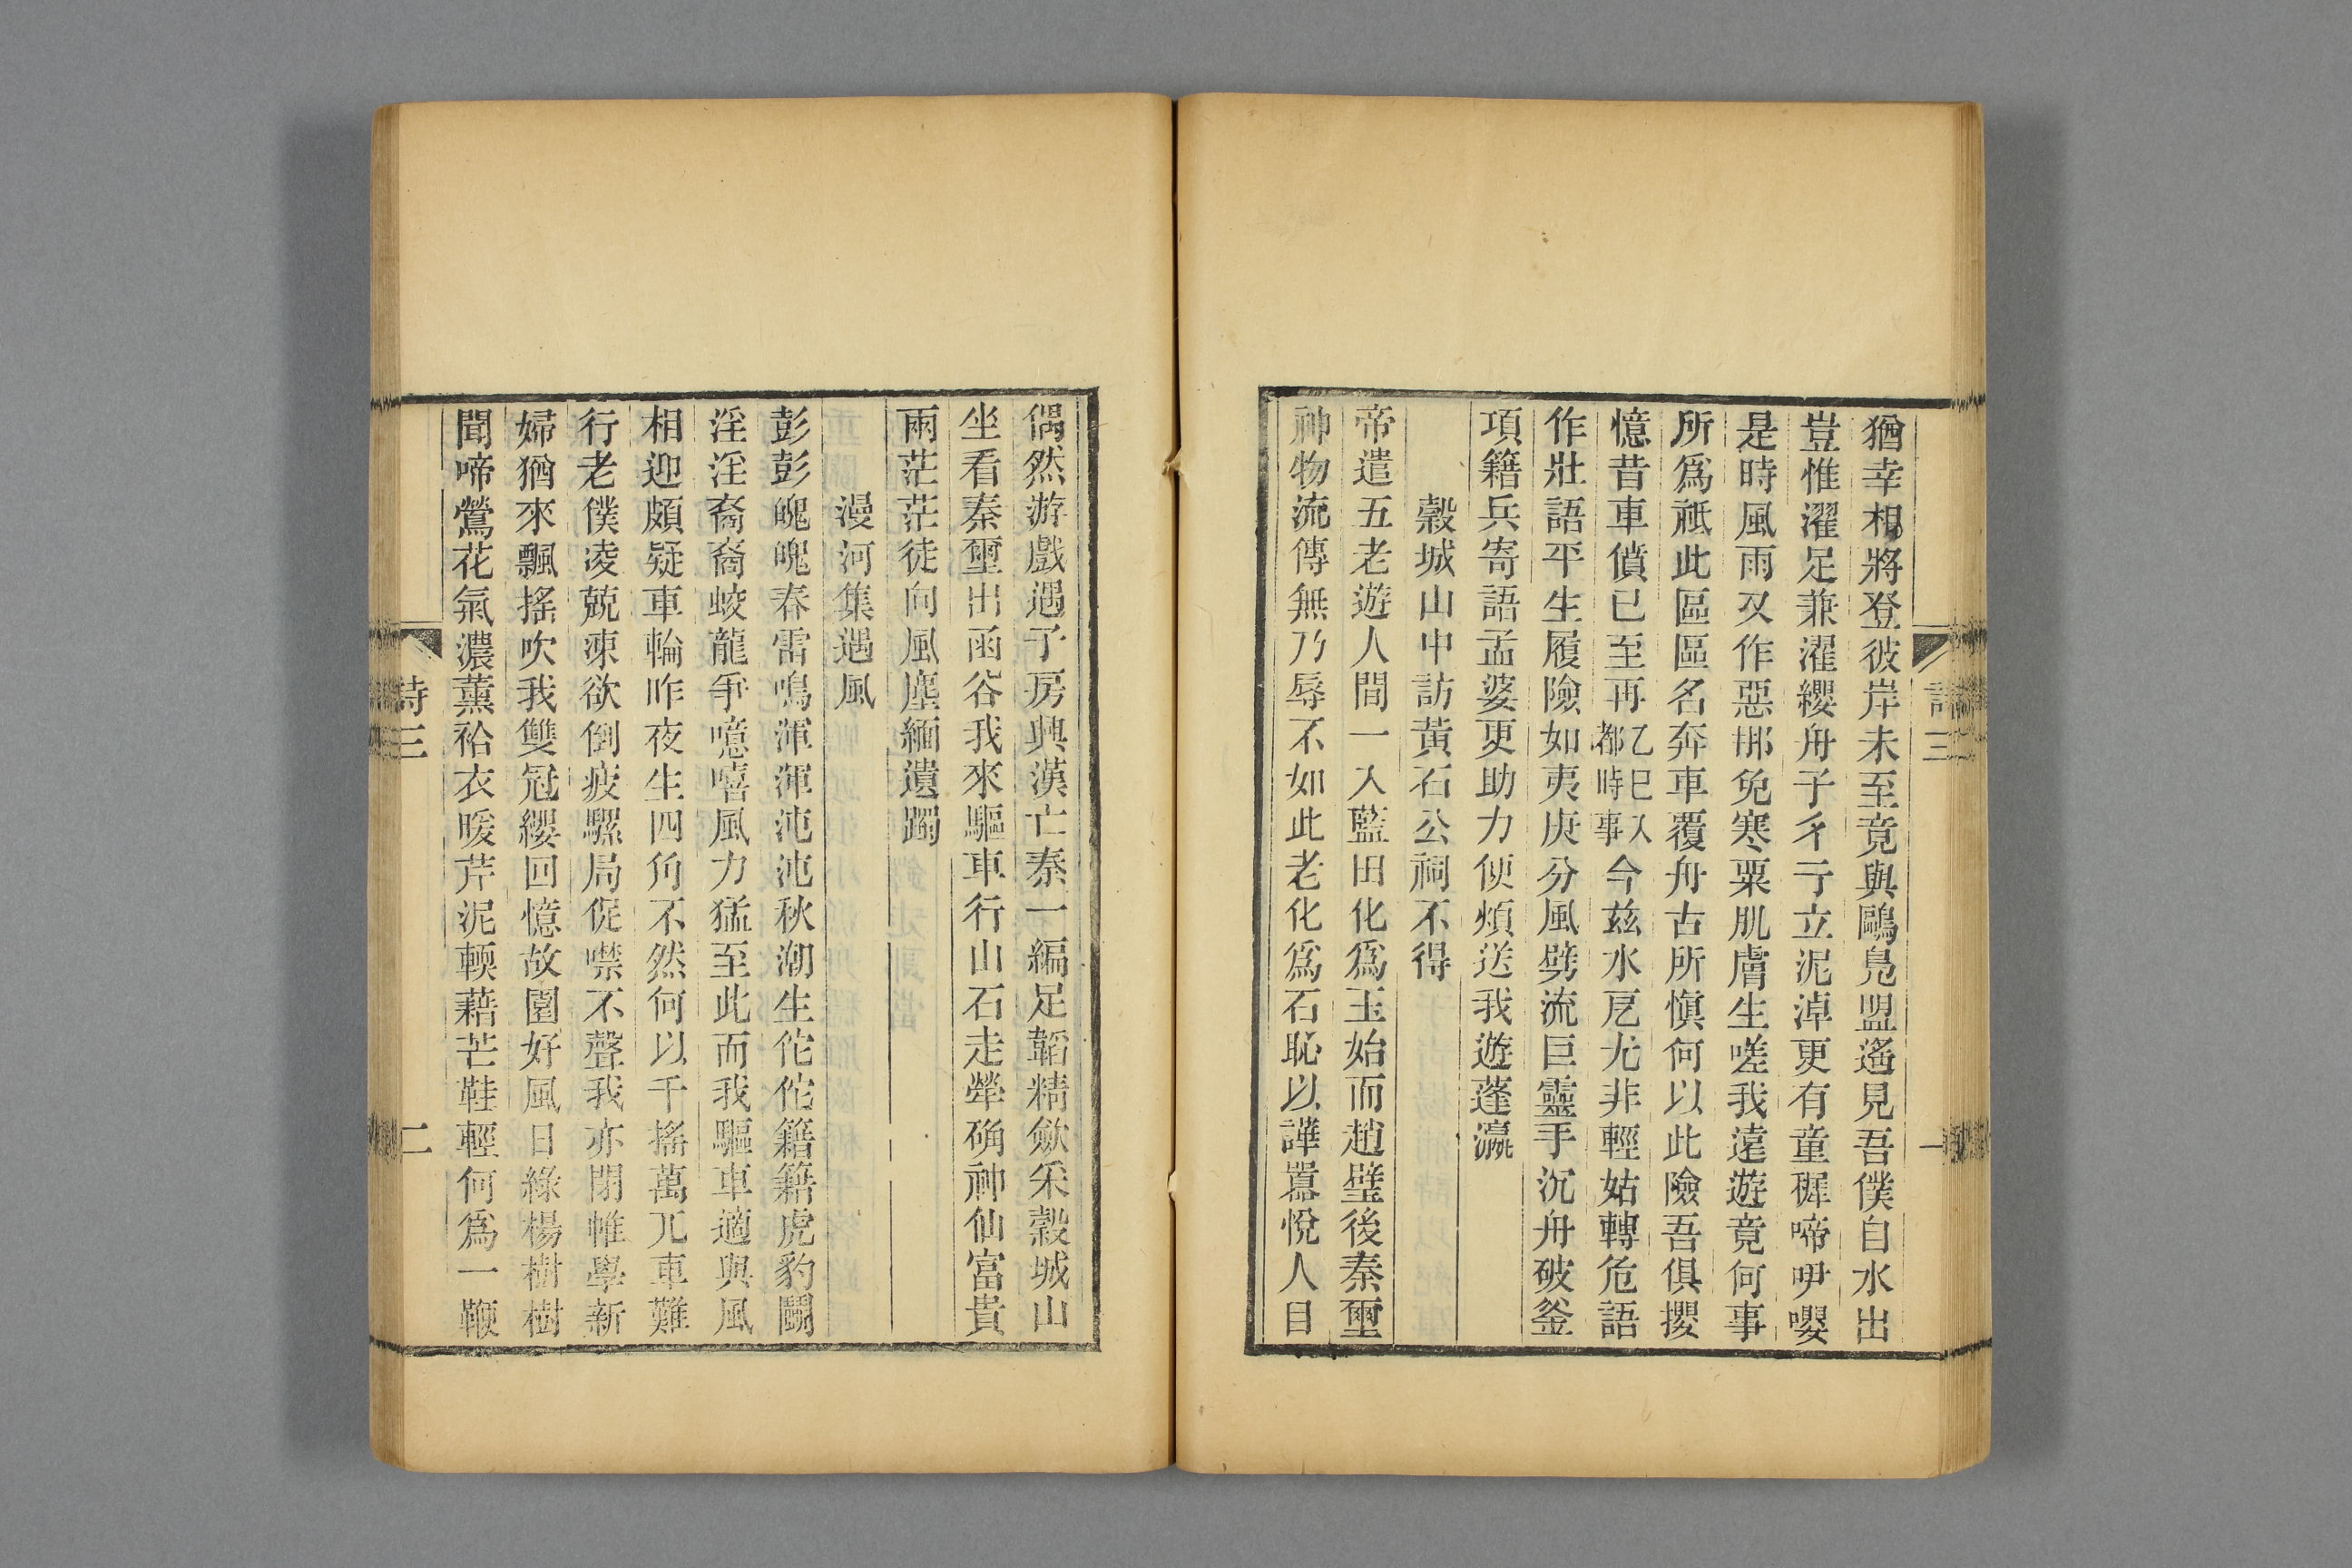 猶幸相將登彼岸未至竟與鷗鳧盟遙見吾僕自水出
豈惟濯足兼濯纓舟子彳亍立泥淖更有童穉啼呼嚶
是時風雨又作惡那免寒粟肌膚生嗟我遠遊竟何事
所爲祗此區區名奔車覆舟古所愼何以此險吾俱攖
憶昔車僨已至再乙巳入都時事今茲水厄尤非輕姑轉危語
作壯語平生履險如夷庚分風劈流巨靈手沉舟破釜
項籍兵寄語孟婆更助力便煩送我遊蓬瀛
穀城山中訪黃石公祠不得
帝遣五老遊人間一入藍田化爲玉始而趙璧後秦璽
神物流傳無乃辱不如此老化爲石恥以譁囂悅人目
詩三
一
偶然游戲遇子房興漢亡秦一編足韜精斂采穀城山
坐看秦璽出函谷我來驅車行山石走犖确神仙富貴
兩茫茫徒向風塵緬遺躅
漫河集遇風
彭彭魄魄春雷鳴渾渾沌沌秋潮生佗佗籍籍虎豹鬭
淫淫裔裔蛟龍爭噫嘻風力猛至此而我驅車適與風
相迎頗疑車輪昨夜生四角不然何以千搖萬兀車難
行老僕凌兢凍欲倒疲騾局促噤不聲我亦閉帷學新
婦猶來飄搖吹我雙冠纓回憶故園好風日綠楊樹樹
聞啼鶯花氣濃薰袷衣暖芹泥輭藉芒鞋輕何爲一鞭
詩三
二